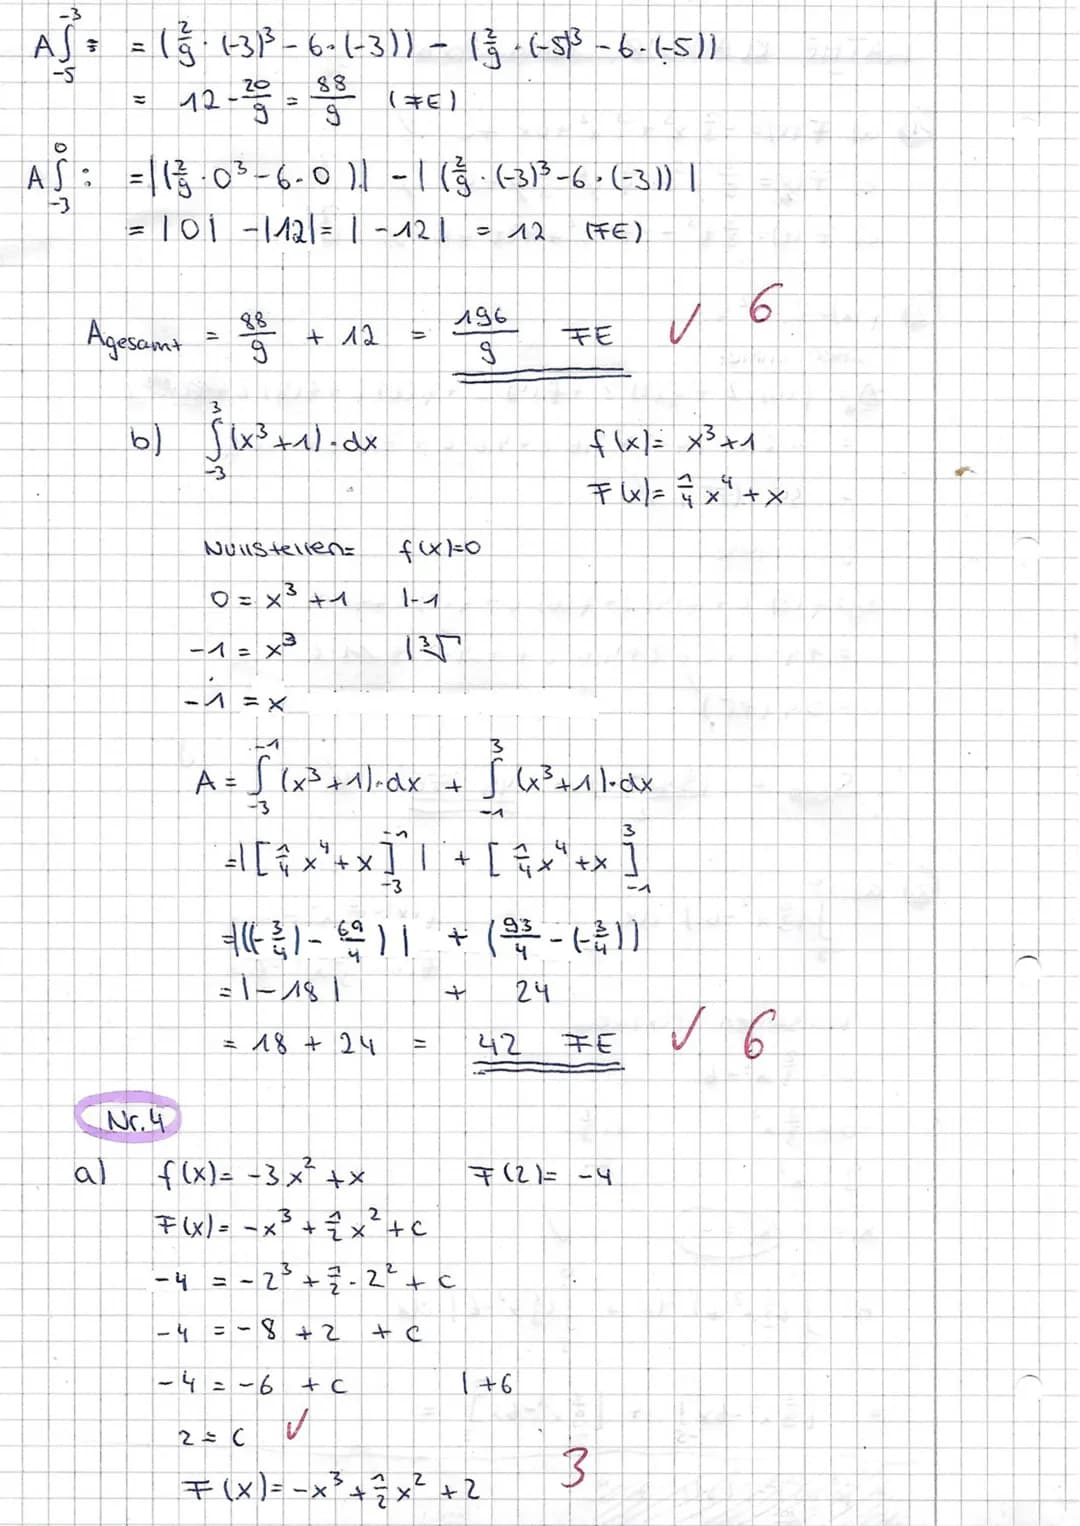 A∫₋₅⁻³ = = (2/9 · (-3)³ - 6·(-3)) - (2/9 · (-5)³ - 6·(-5))
= 12 - 20/9 = 88/9 (FE)
A∫₋₃⁰ : = |(2/9 · 0³ - 6·0)| - |(2/9 · (-3)³ - 6·(-3))|
= |0| - |12| = |-12| = 12 (FE)
Agesamt = 88/9 + 12 = 196/9 FE ✓ 6
b) ∫₋₃³ (x³+1)·dx f(x)= x³+1
F(x)= 1/4 x⁴ + x
Nullstellen= f(x)=0
0 = x³ +1 |-1
-1 = x³ |³√
-1 = x
A = ∫₋₃⁻¹ (x³+1)·dx + ∫₋₁³ (x³+1)·dx
=|[1/4 x⁴+x]₋₃⁻¹| + [1/4 x⁴+x]₋₁³
=|((-3/4) - 69/4)| + (93/4 - (-3/4))
=|-18| + 24
= 18 + 24 = 42 FE ✓ 6
Nr. 4
a) f(x)= -3x² +x F(2)= -4
F(x)= -x³ + 1/2 x² + c
-4 = -2³ + 1/2 · 2² + c
-4 = -8 + 2 + c
-4 = -6 + c |+6
2 = c ✓
F(x)= -x³ + 1/2 x² + 2 3